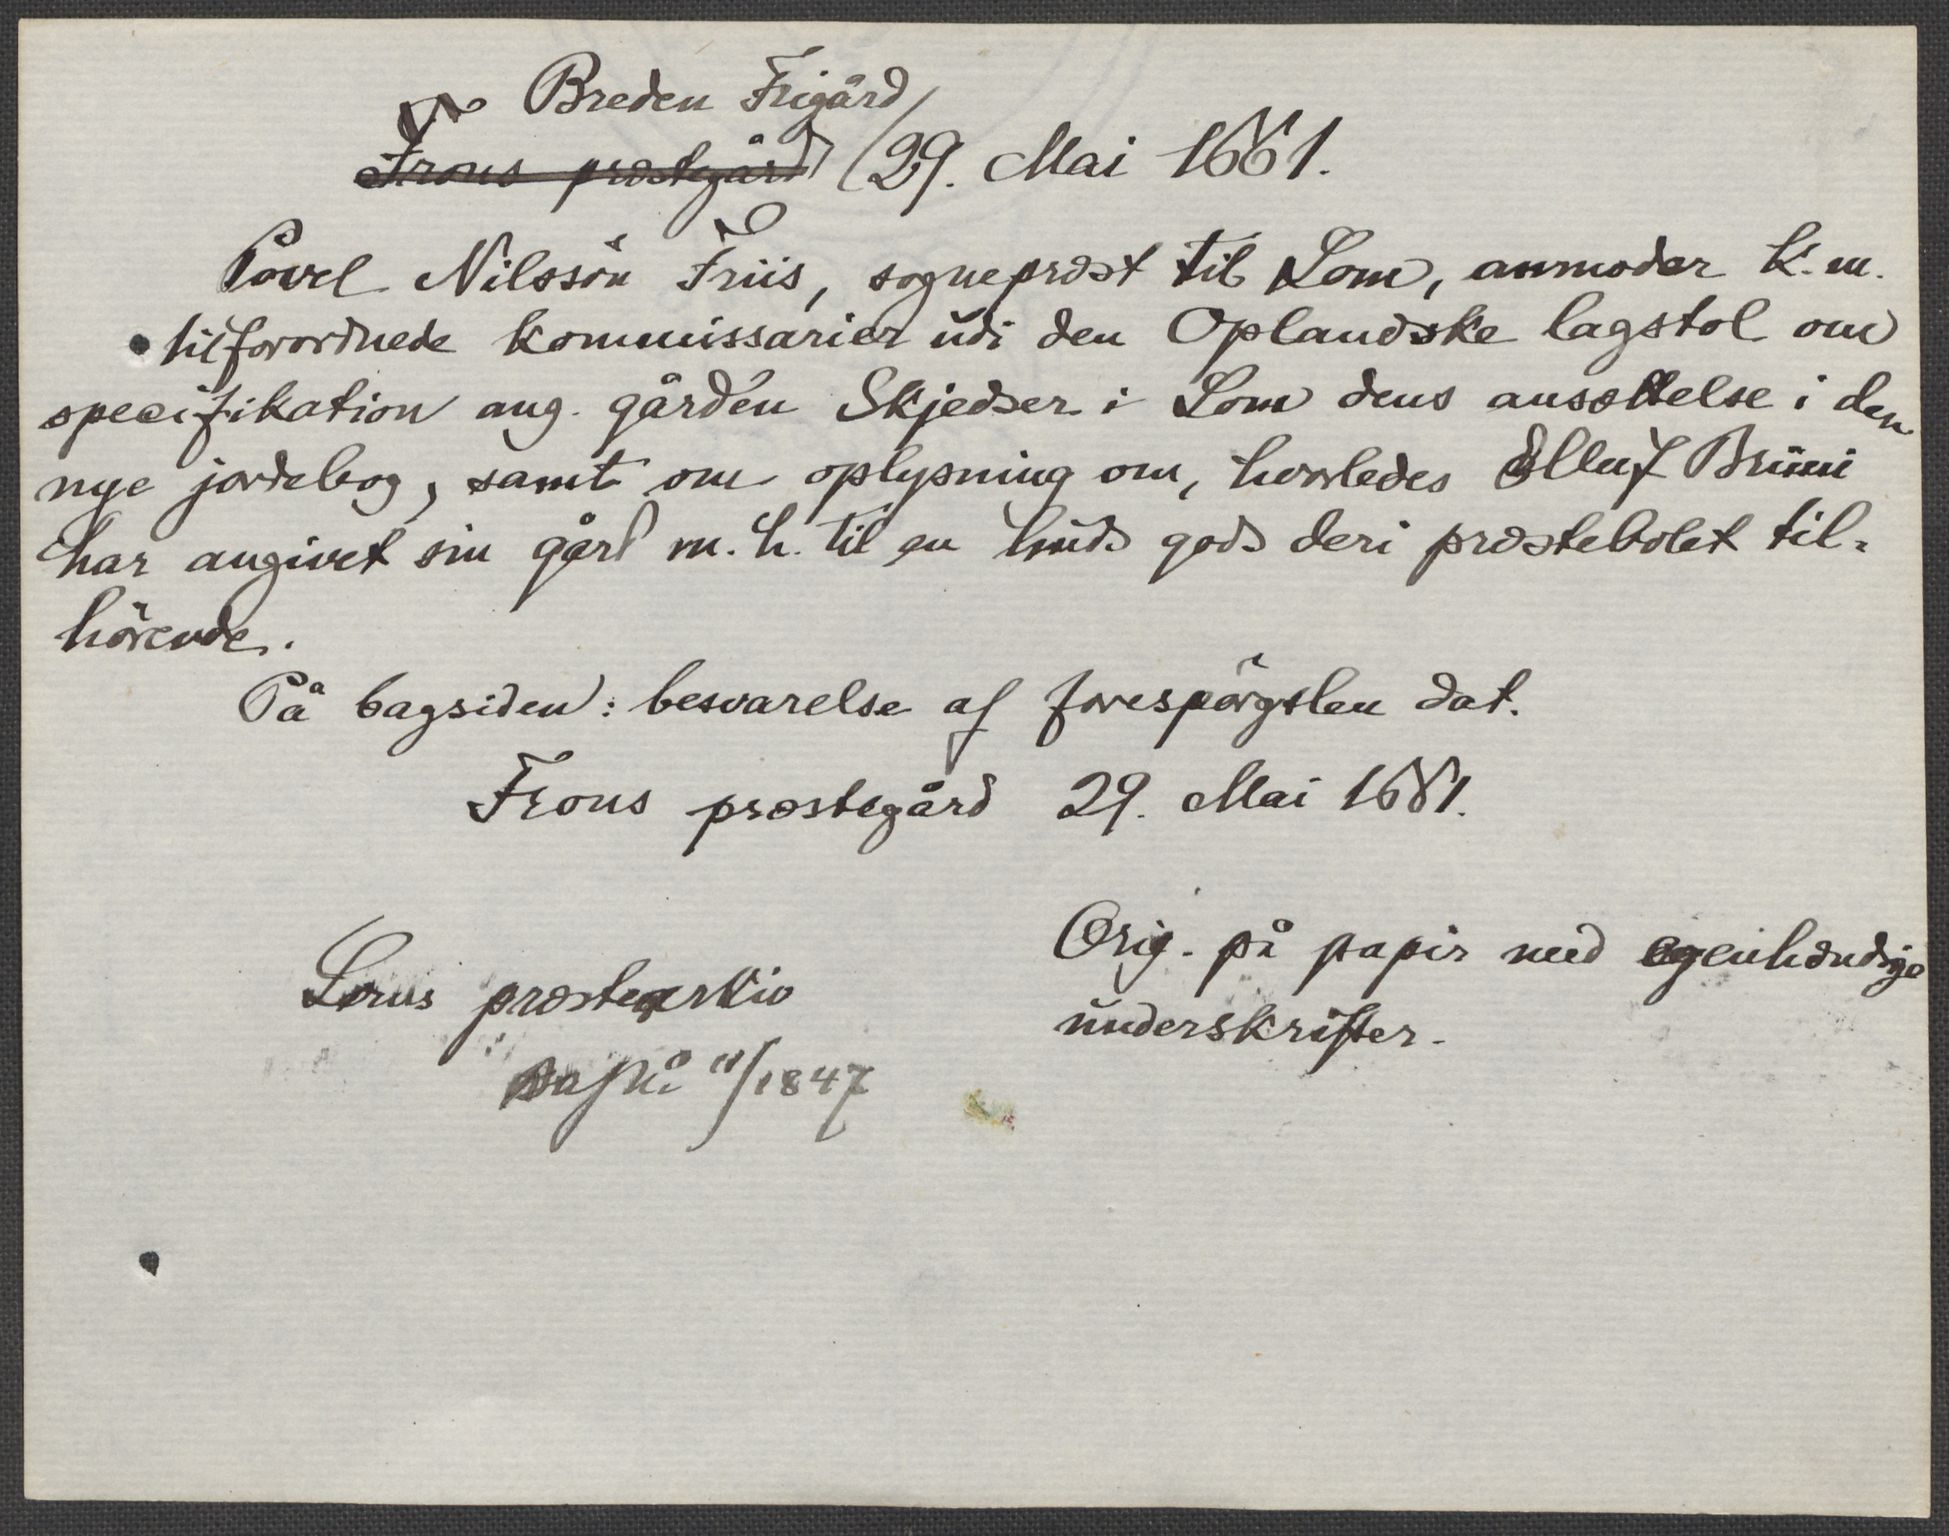 Breden Frigård
Frons præstegård 29. Mai 1661.
Povel Nilssön Friis, sognepræst til Lom, anmoder K. m.
tilforordnede kommissarier udi den Oplandske lagstol om
specifikation ang. gården Skjedser i Lom dens ansættelse i den
nye jordebog, samt om oplysning om, hvorledes Olluf Bruni
har angivet sin gård m. h. til en huds gods deri præstebolet til-
hörende.
På bagsiden: besvarelse af forespörgslen dat.
Frons præstegård 29. Mai 1661.
Orig. på papir med egenhændige
Loms præstearkiv
underskrifter.
11/1847